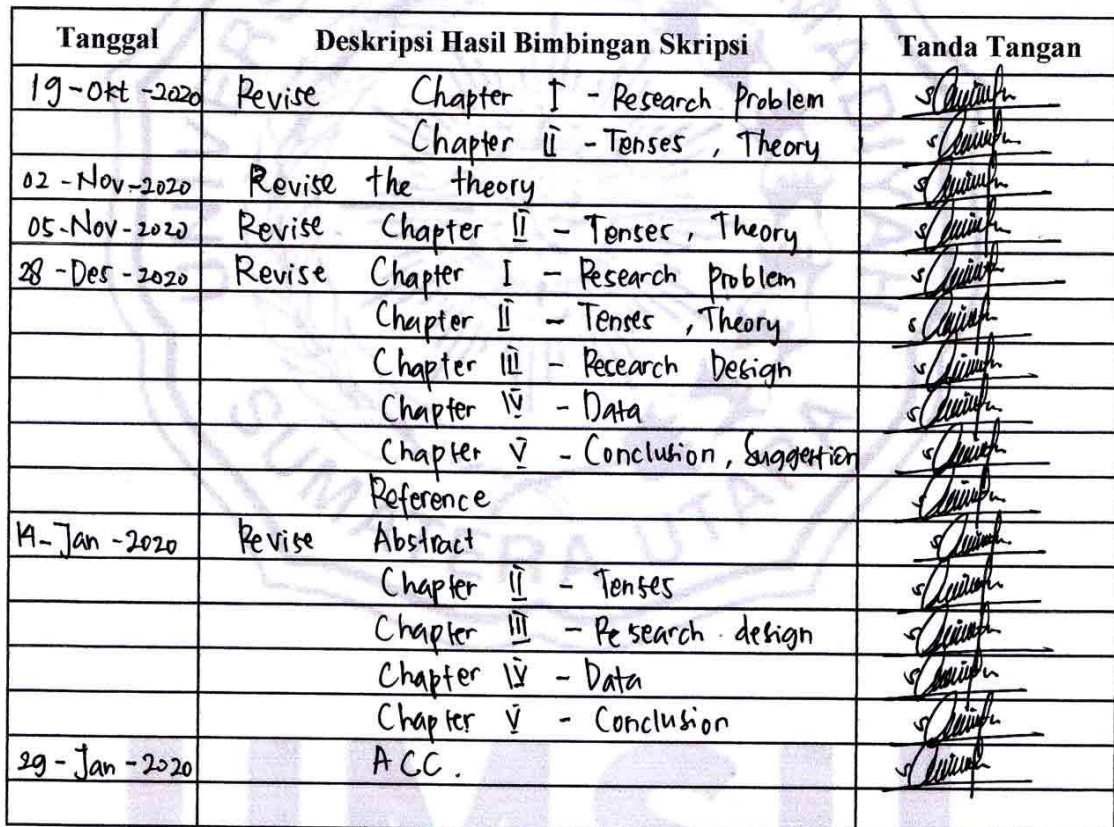 Tanggal Deskripsi Hasil Bimbingan Skripsi Tanda Tangan
19-Okt-2020 Revise Chapter I - Research Problem
Chapter II - Tenses, Theory
02-Nov-2020 Revise the theory
05-Nov-2020 Revise Chapter II - Tenses, Theory
28-Des-2020 Revise Chapter I - Research problem
Chapter II - Tenses, Theory
Chapter III - Research Design
Chapter IV - Data
Chapter V - Conclusion, Suggestion
Reference
14-Jan-2020 Revise Abstract
Chapter II - Tenses
Chapter III - Research design
Chapter IV - Data
Chapter V - Conclusion
29-Jan-2020 ACC.
SUMATERA UTARA
UMSU